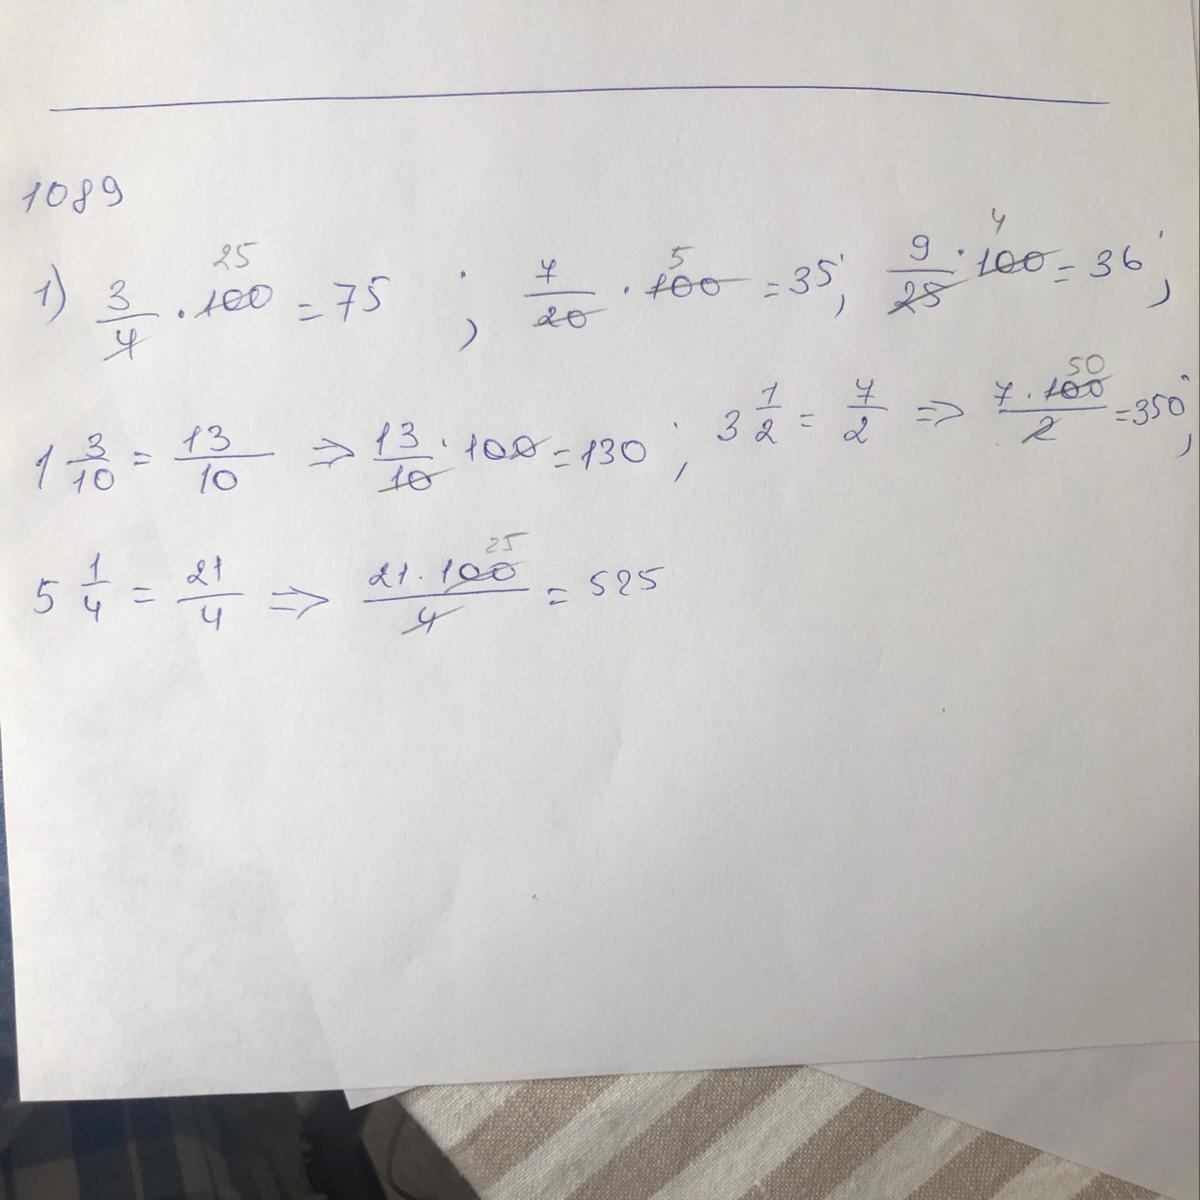 1089
1) 3/4 · 100 25 = 75 ; 7/20 · 100 5 = 35 ; 9/25 · 100 4 = 36 ;
1 3/10 = 13/10 => 13/10 · 100 = 130 ; 3 1/2 = 7/2 => 7 · 100 50/2 = 350 ;
5 1/4 = 21/4 => 21 · 100 25/4 = 525